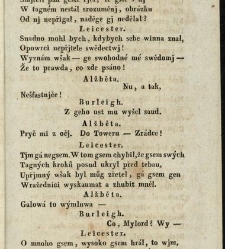 W tagném nestál srozuměnj, obrázku
Od nj nepřigal, naděge gj nedělal?
Leicester.
Snadno mohl bych, kdybych sebe winna znal,
Opowrci nepřjtele swědectwj!
Wyznám wšak — ge swobodné mé swědomj —
Že to prawda, co zde psáno!
Alžběta.
Nu, a tak,
Nešťastnjče!
Burleigh.
Z geho ust mu wyšel saud.
Alžběta.
Pryč mi z očj. Do Toweru — Zrádce!
Leicester.
Tjm gá negsem. W tom gsem chybil, že gsem swých
Tagných kroků posud ukryl před tebou,
Upřjmný wšak byl můg zřetel, gá gsem gen
Wražednici wyskaumat a zhubit mněl.
Alžběta.
Galowá to wýmluwa —
Burleigh.
Co, Mylord? Wy —
Leicester.
O mnoho gsem, wysoko gsem hrál, to wjm,